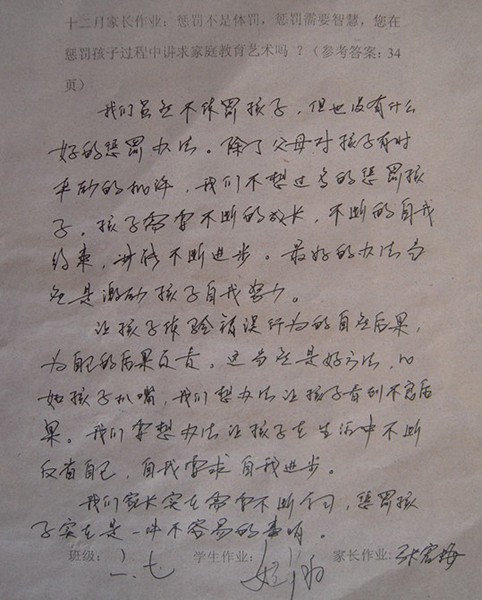 十二月家长作业：惩罚不是体罚，惩罚需要智慧，您在
惩罚孩子过程中讲求家庭教育艺术吗？（参考答案：34
页）
我们虽然不体罚孩子，但也没有什么
好的惩罚办法。除了父母对孩子有时
严励的批评，我们不想过多的惩罚孩
子，孩子需要不断的成长，不断的自我
约束，并能不断进步。最好的办法应
该是激励孩子自我努力。
让孩子体验错误行为的自然后果，
为自己的后果负责，这应该是好方法，比
如孩子扒嘴，我们想办法让孩子看到不良后
果。我们要想办法让孩子在生活中不断
反省自己，自我要求自我进步。
我们家长实在需要不断学习，惩罚孩
子实在是一件不容易的事情。
班级：一.七 学生作业： 家长作业：张